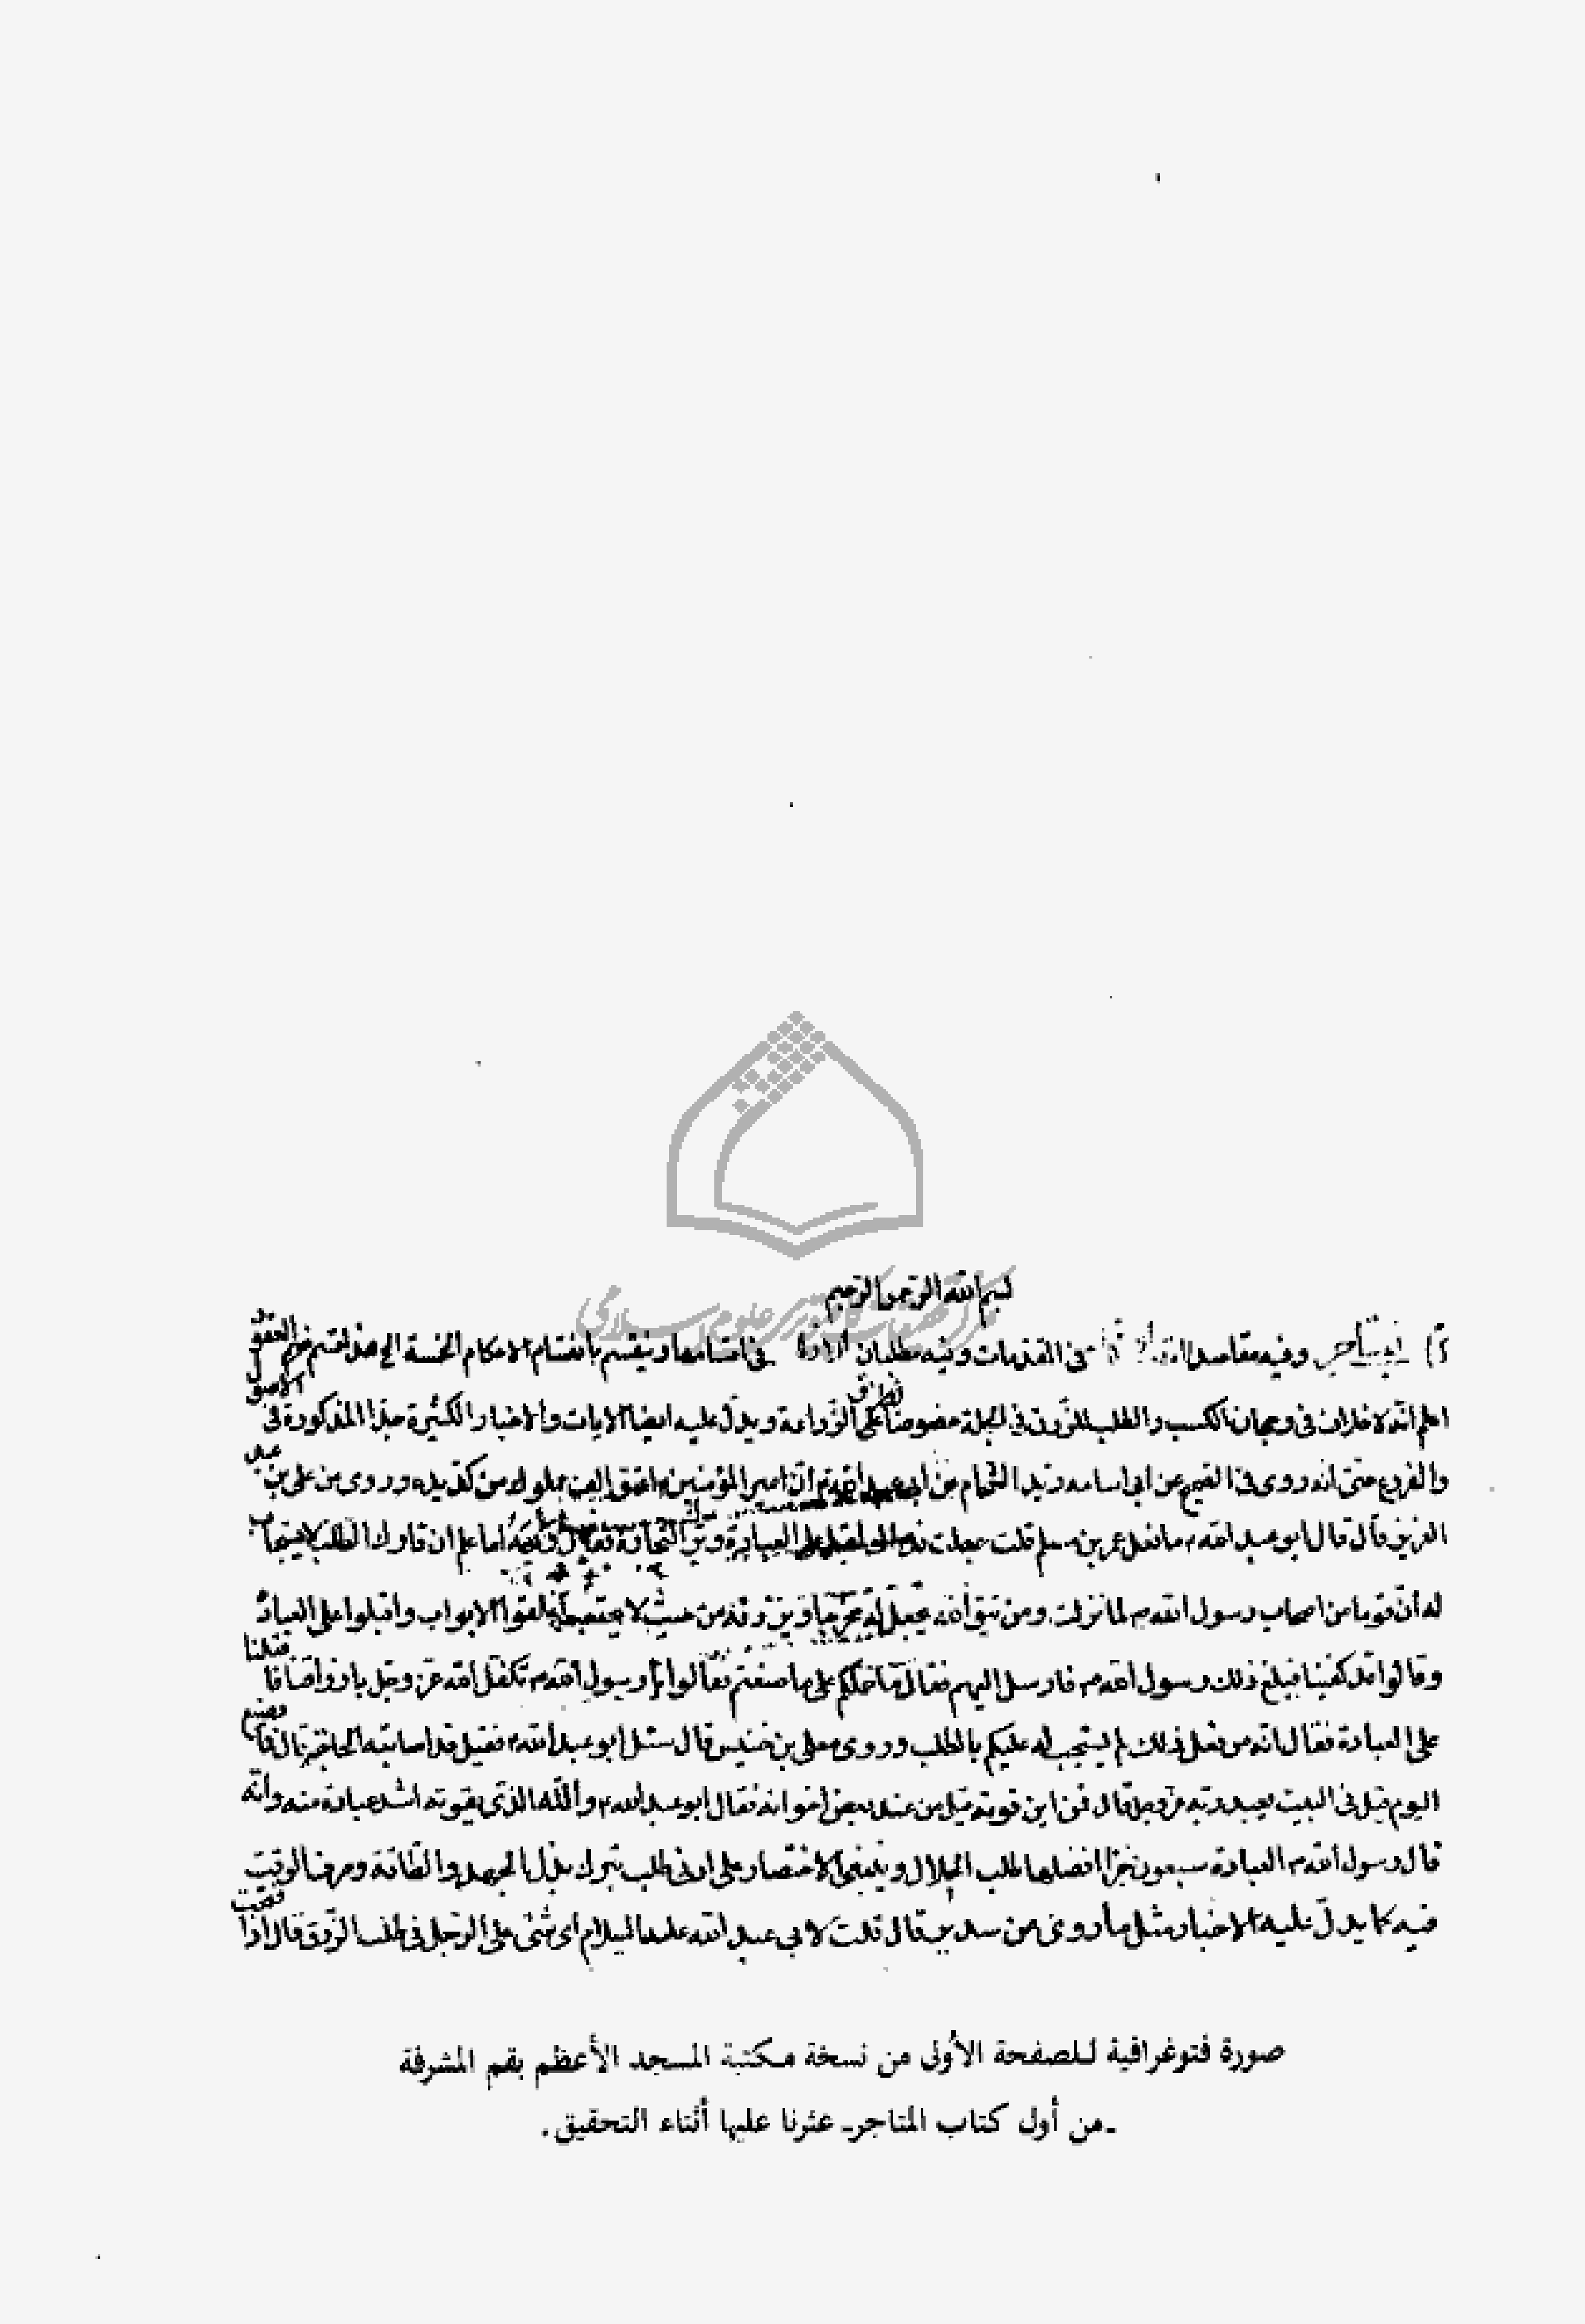 بسم الله الرحمن الرحيم
وفيه مقاصد في المقدمات وفيه مطلبان في اقسامها وينقسم بانقسام الاحكام الخمسة الى
اعلم انه لا خلاف في رجحان الكسب والطلب للرزق في الجملة خصوصا على الزراعة ويدل عليه ايضا الايات والاخبار الكثيرة جدا المذكورة في الاصول
والفروع حتى انه روى في الصحيح عن ابي اسامة زيد الشحام عن ابي عبد الله ان امير المؤمنين اعتق الف مملوك من كد يده وروى عن علي بن عبد
العزيز قال قال ابو عبد الله ما فعل عمر بن مسلم قلت جعلت فداك اقبل على العبادة وترك التجارة فقال ويحه اما علم ان تارك الطلب لا يستجاب
له ان قوما من اصحاب رسول الله ص لما نزلت ومن يتق الله يجعل له مخرجا ويرزقه من حيث لا يحتسب اغلقوا الابواب واقبلوا على العبادة
وقالوا قد كفينا فبلغ ذلك رسول الله ص فارسل اليهم فقال ما حملكم على ما صنعتم فقالوا يا رسول الله ص تكفل الله عز وجل بارزاقنا فاقبلنا
على العبادة فقال انه من فعل ذلك لم يستجب له عليكم بالطلب وروى معلى بن خنيس قال سئل ابو عبد الله فقيل قد اصابته الحاجة قال فما يصنع
اليوم قيل في البيت يعبد ربه عز وجل قال فمن اين قوته قيل من عند بعض اخوانه فقال ابو عبد الله والله الذي يقوته اشد عبادة منه وانه
قال رسول الله ص العبادة سبعون جزءا افضلها طلب الحلال وينبغي الاختصار على ادنى طلب بترك بذل الجهد والطاقة وصرف الوقت
فيه كما يدل عليه الاخبار مثل ما روى عن سدير قال قلت لابي عبد الله عليه السلام اي شئ على الرجل في طلب الرزق فقال اذا فتحت
صورة فتوغرافية للصفحة الأولى من نسخة مكتبة المسجد الأعظم بقم المشرفة
-من أول كتاب المتاجر- عثرنا عليها أثناء التحقيق.